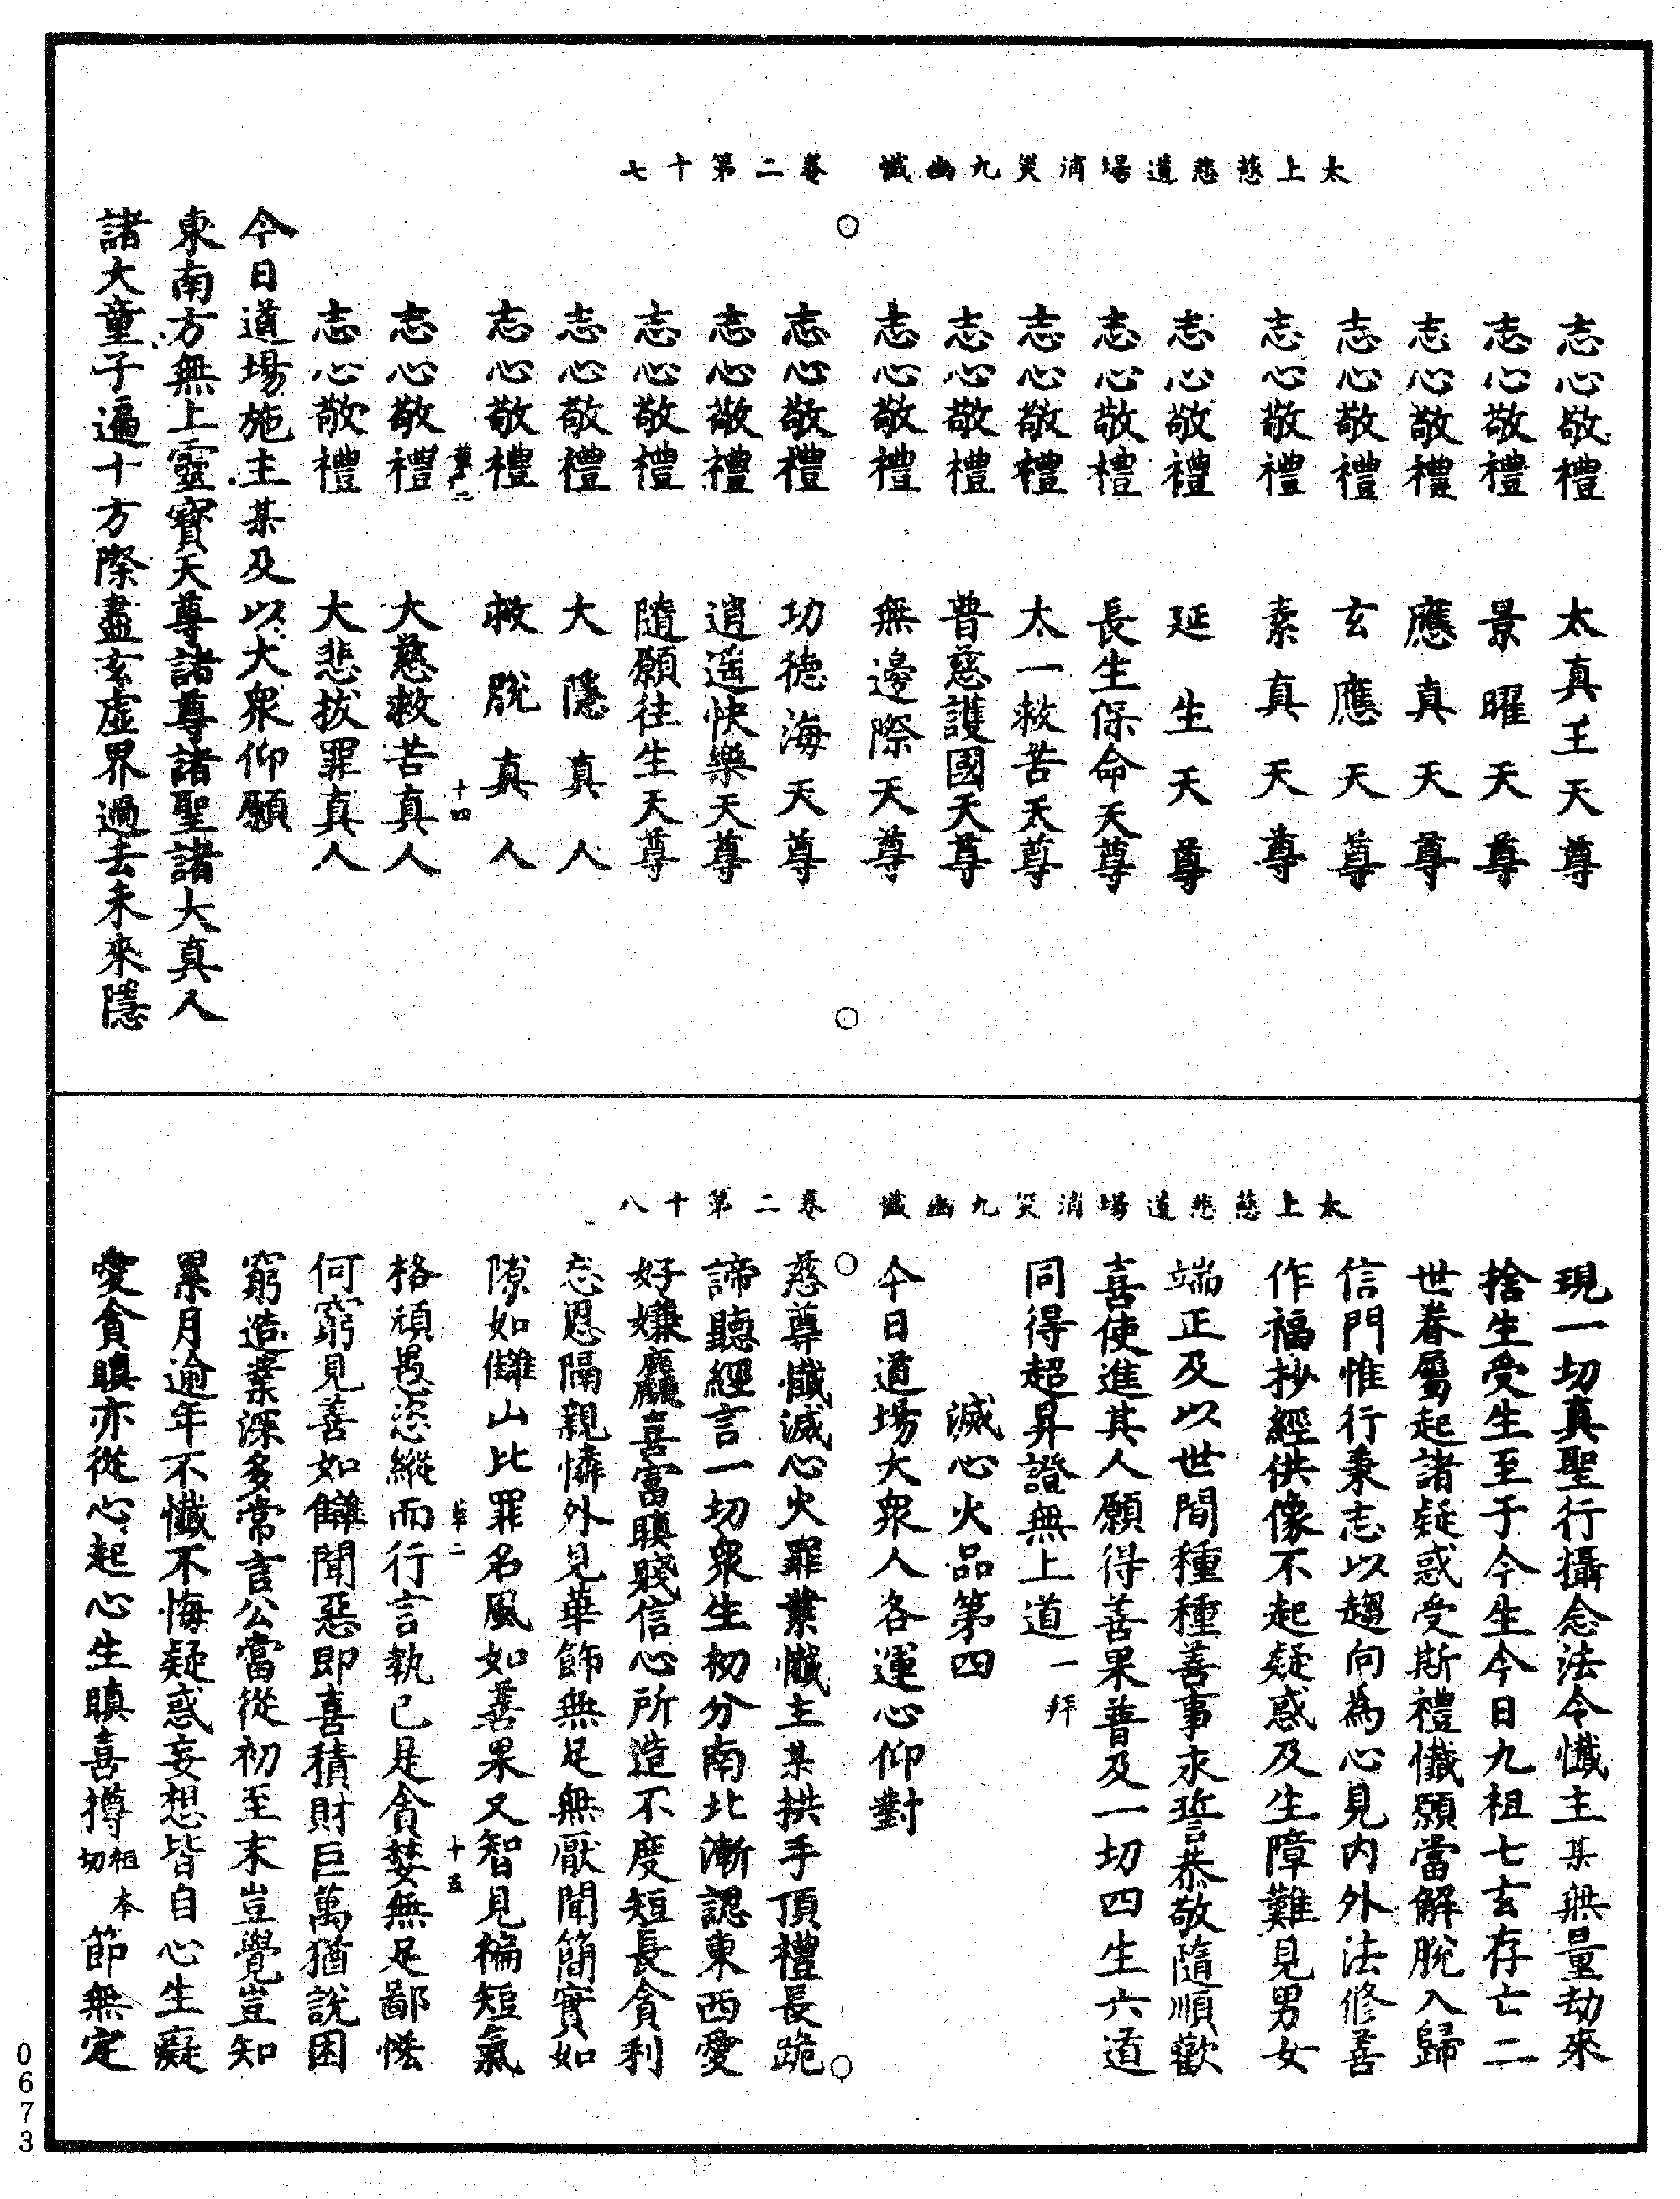 太上慈悲道場消災九幽懺　卷二第十七
志心敬禮　太真王天尊
志心敬禮　景曜天尊
志心敬禮　應真天尊
志心敬禮　玄應天尊
志心敬禮　素真天尊
志心敬禮　延生天尊
志心敬禮　長生保命天尊
志心敬禮　太一救苦天尊
志心敬禮　普慈護國天尊
志心敬禮　無邊際天尊
志心敬禮　功德海天尊
志心敬禮　逍遥快樂天尊
志心敬禮　隨願往生天尊
志心敬禮　大隱真人
志心敬禮　救脫真人
草二　十四
志心敬禮　大慈救苦真人
志心敬禮　大悲拔罪真人
今日道場施主某及以大衆仰願
東南方無上靈寶天尊諸尊諸聖諸大真人
諸大童子遍十方際盡玄虛界過去未來隱
太上慈悲道場消災九幽懺　卷二第十八
現一切真聖行攝念法令懺主某無量劫來
捨生受生至于今生今日九祖七玄存亡二
世眷屬起諸疑惑受斯禮懺願當解脫入歸
信門惟行秉志以趨向為心見内外法修善
作福抄經供像不起疑惑及生障難見男女
端正及以世間種種善事永誓恭敬隨順歡
喜使進其人願得善果普及一切四生六道
同得超昇證無上道一拜
滅心火品第四
今日道場大衆人各運心仰對
慈尊懺滅心火罪業懺主某拱手頂禮長跪
諦聽經言一切衆生初分南北漸認東西愛
好嫌麤喜富瞋賤信心所造不度短長貪利
忘恩隔親憐外見華飾無足無厭聞簡實如
隙如讎山比罪名風如善果又智見褊短氣
草二　十五
格頑愚恣縱而行言執已是貪婪無足鄙悋
何窮見善如讎聞惡即喜積財巨萬猶說困
窮造業深多常言公當從初至末豈覺豈知
累月逾年不懺不悔疑惑妄想皆自心生癡
愛貪瞋亦從心起心生瞋喜撙祖本切節無定
0673